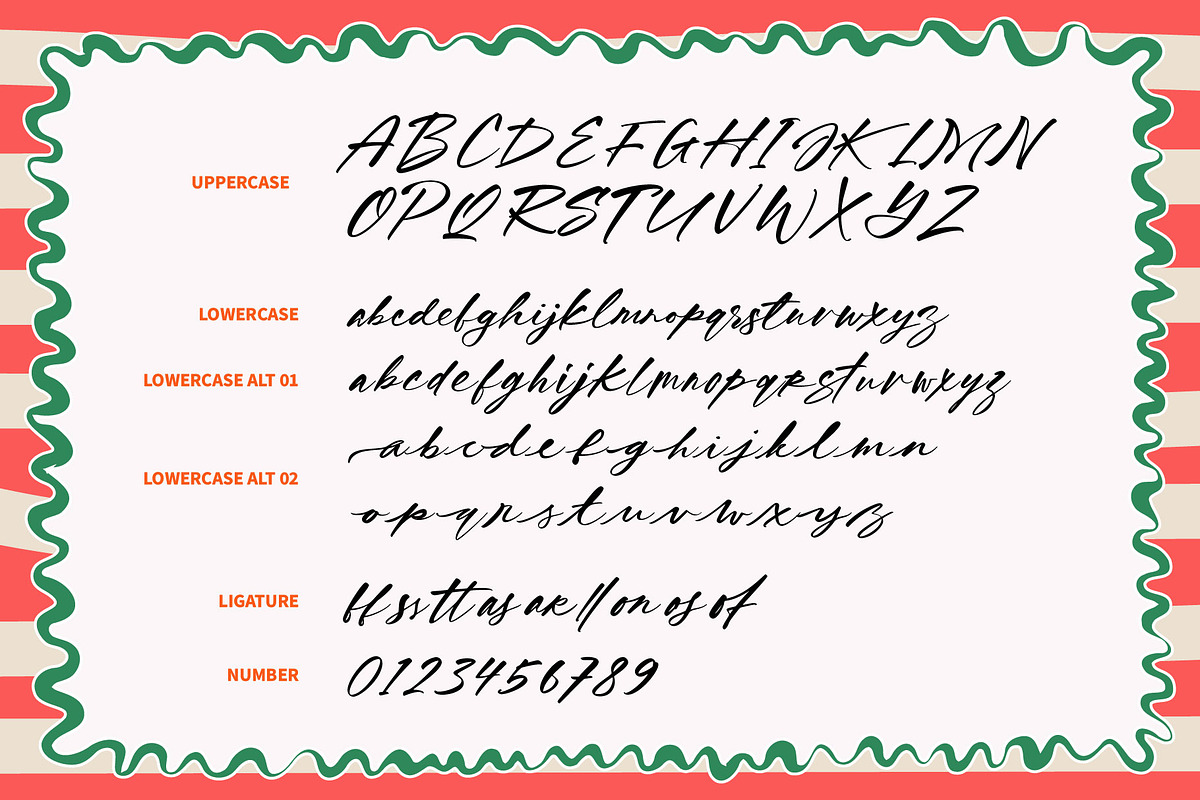 UPPERCASE
ABCDEFGHIJKLMN
OPQRSTUVWXYZ
LOWERCASE
abcdefghijklmnopqrsturvwxyz
LOWERCASE ALT 01
abcdefghijklmnopqrsturvwxyz
LOWERCASE ALT 02
abcdefghijklmn
opqrstuvwxyz
LIGATURE
ff ss tt as ar ll on os of
NUMBER
0123456789